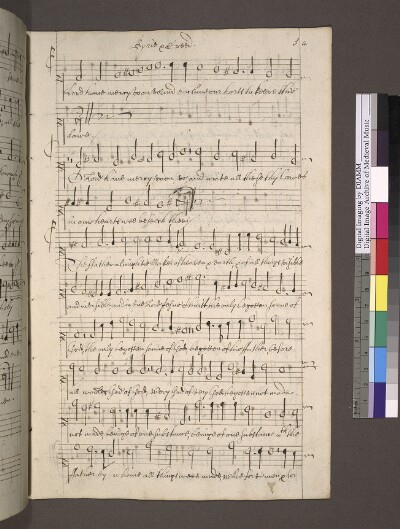 Lord have mercy upon us and encline our harts to keepe this
Lawe
Lord have mercy upon us and write all these thy Lawes
in our hearts we beseech thee
The Father almightie Maker of heaven & earth & of all things visible
and invisible and in one Lord Jesus Christ the only begotten sonne of
God, the only begotten sonne of God begotten of his father before
all worlds God of God, very God of very God begotten not made
not made, beinge of one substance, beinge of one substance wth the
father by whome all things were made, who for us men & for
Digital Imaging by DIAMM
Digital Image Archive of Medieval Music